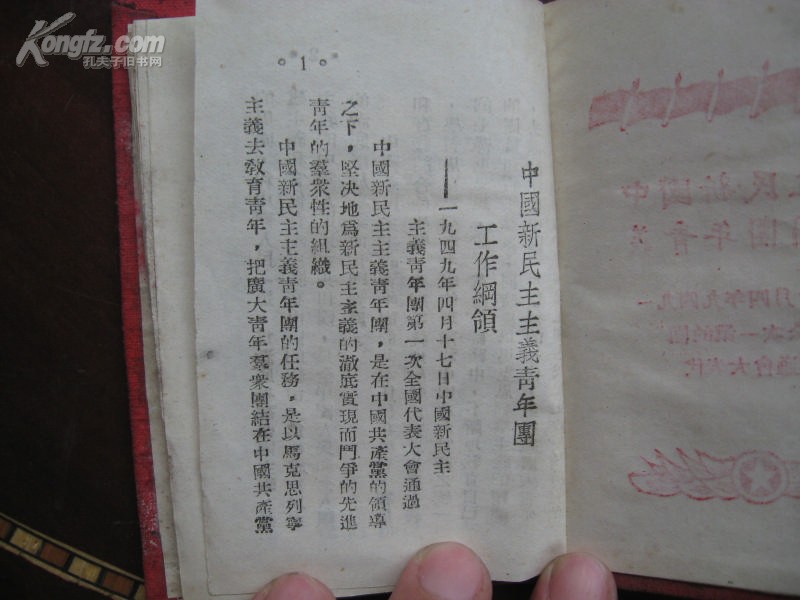 Kongfz.com
孔夫子旧书网
中國新民主主義青年團
工作綱領
——一九四九年四月十七日中國新民主
主義青年團第一次全國代表大會通過
中國新民主主義青年團，是在中國共產黨的領導
之下，堅决地爲新民主主義的澈底實現而鬥爭的先進
青年的羣衆性的組織。
中國新民主主義青年團的任務，是以馬克思列寧
主義去敎育青年，把廣大青年羣衆團結在中國共產黨
。1。